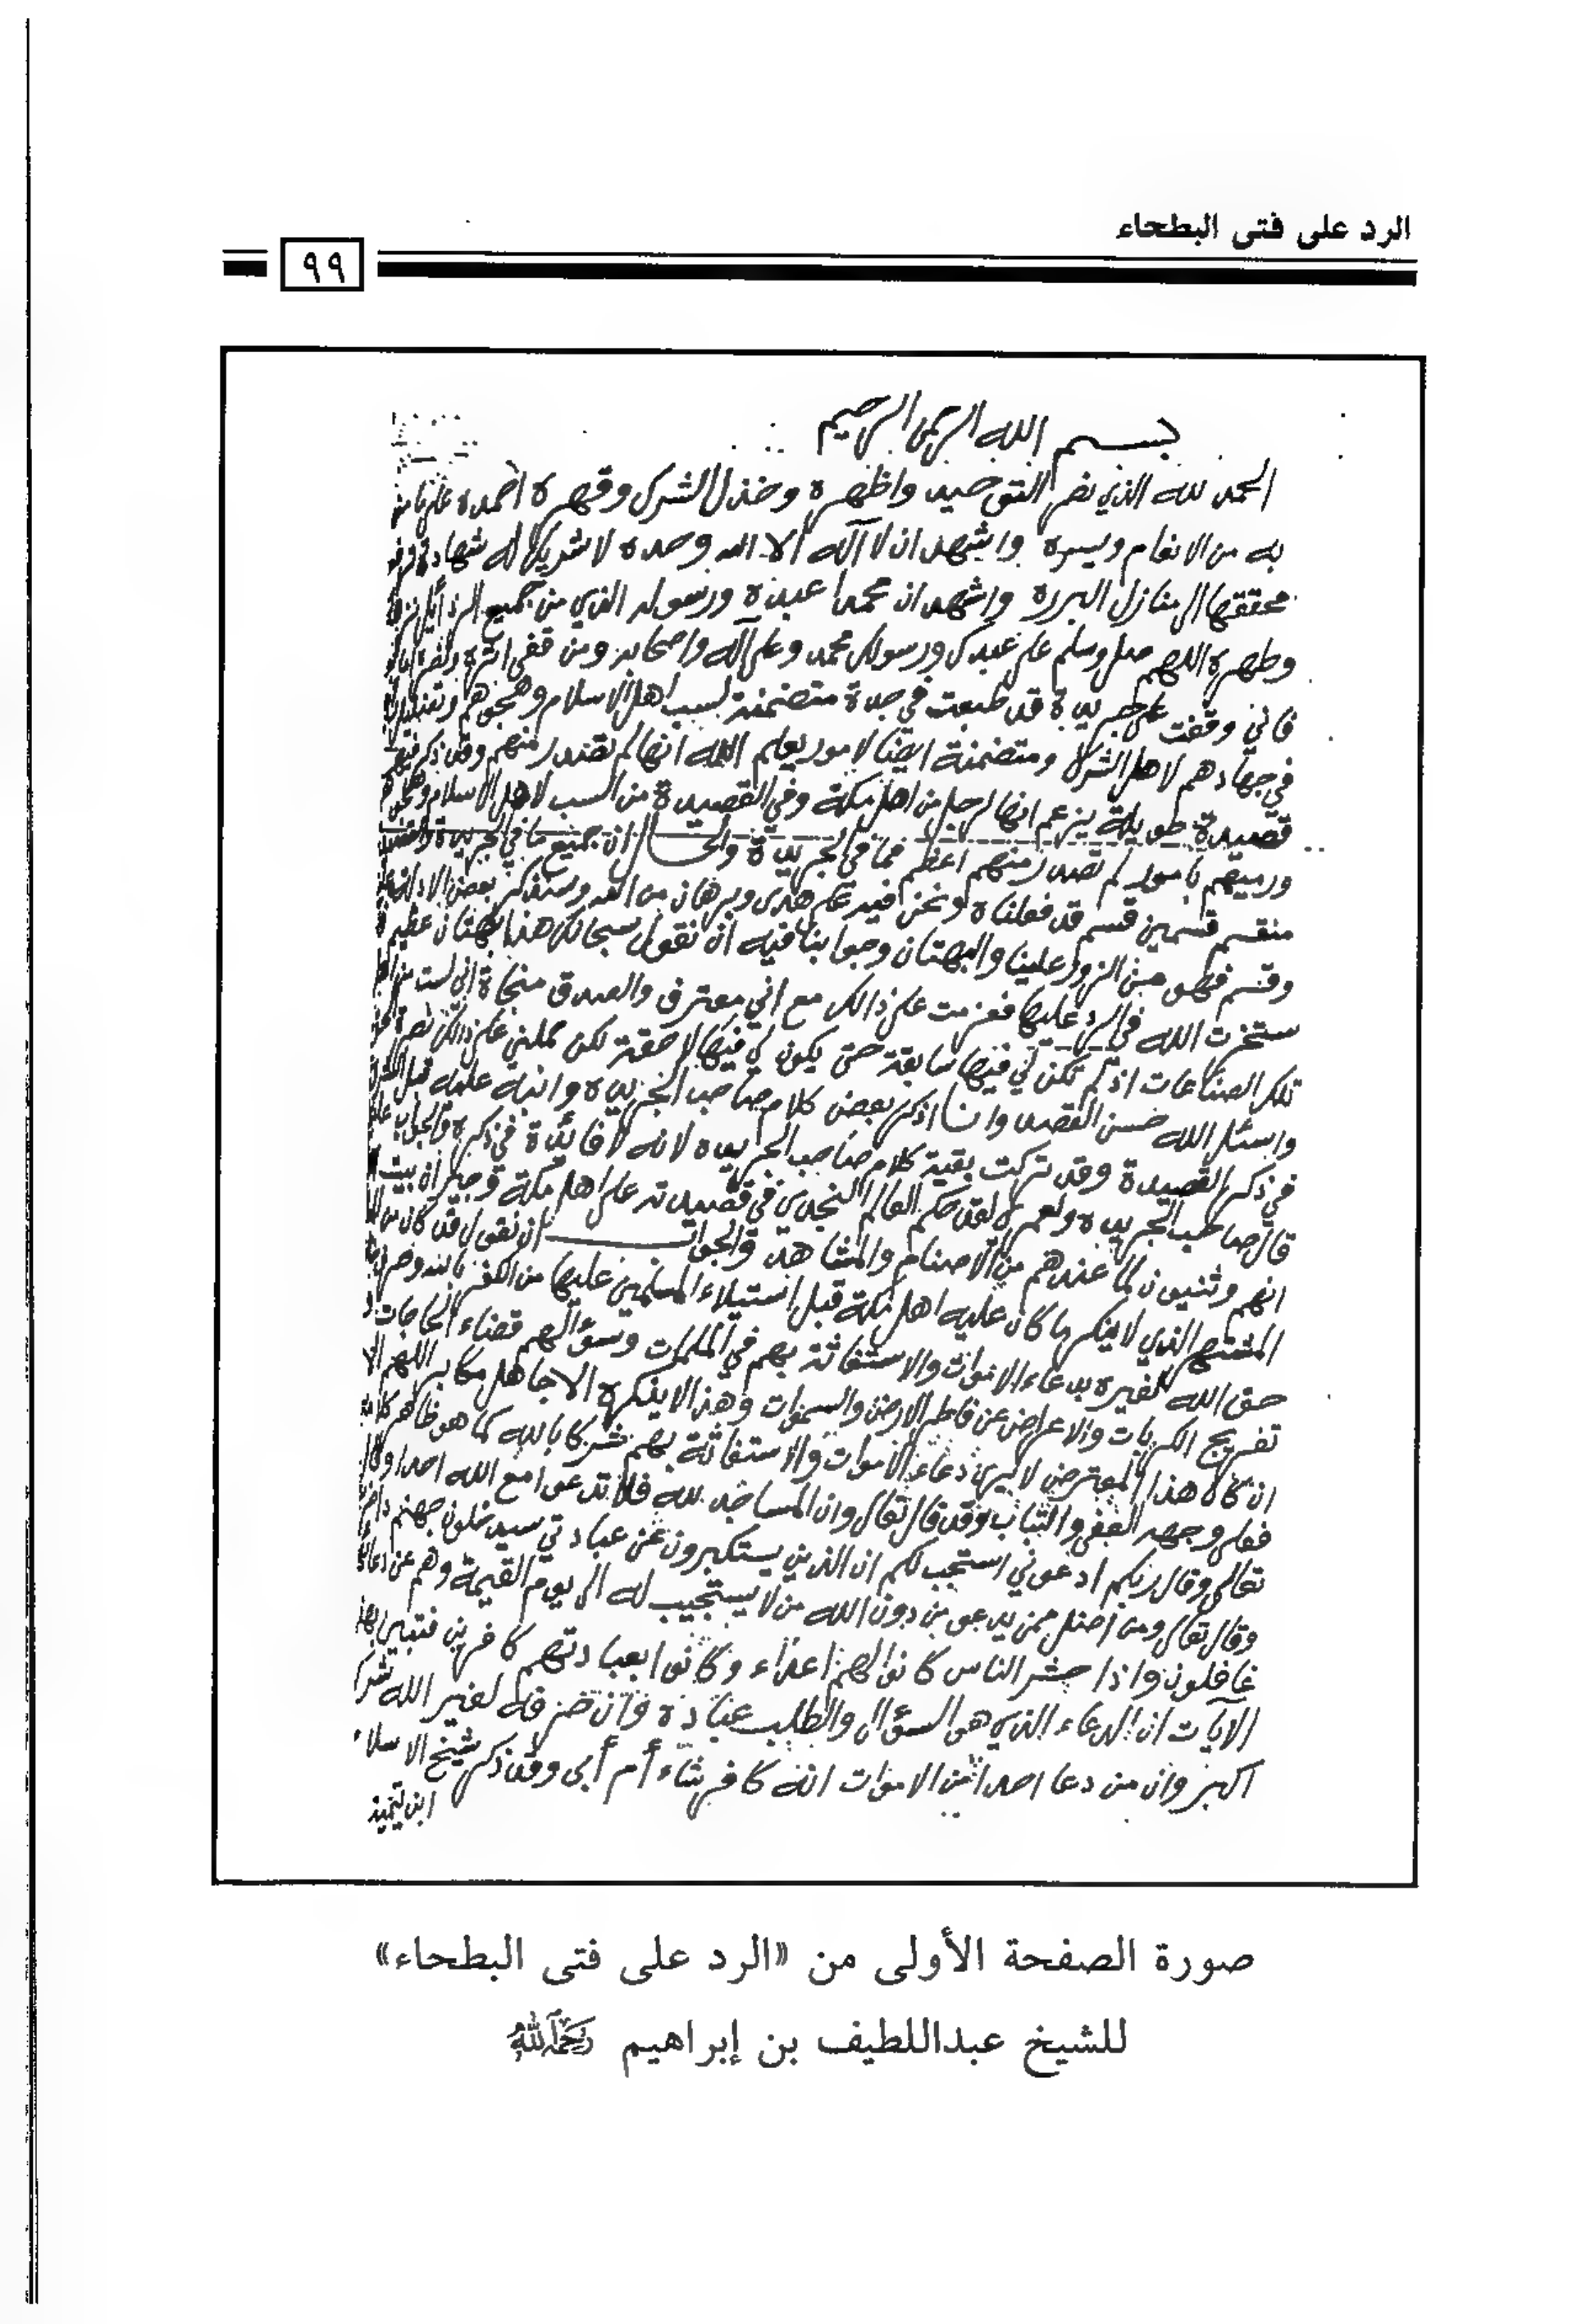 الرد على فتى البطحاء
٩٩
بسم الله الرحمن الرحيم
الحمد لله الذي نصر التوحيد واظهره وخذل الشرك وقهره احمده على ما من
به من الانعام ويسره واشهد ان لا آله الا الله وحده لا شريك له شهادة
محققها الى منازل البرره واشهد ان محمدا عبده ورسوله الذي من جميع الرذائل
وطهره اللهم صل وسلم على عبدك ورسولك محمد وعلى آله واصحابه ومن قفى اثره
فاني وقفت على جريدة قد طبعت في جدة متضمنة لسب اهل الاسلام وهجوهم
في جهادهم لاهل الشرك ومتضمنة ايضا لامور يعلم الله انها لم تصدر منهم وقد ذكر فيها
قصيدة طويلة يزعم انها لرجل من اهل مكة وفي القصيدة من السب لاهل الاسلام
ورميهم بامور لم تصدر منهم اعظم مما في الجريدة والحال ان جميع ما في الجريدة
منقسم قسمين قسم قد فعلناه ونحن فيه على هدى وبرهان من الله وسنذكر بعض الادلة
وقسم فهو من الزور علينا والبهتان وجوابنا فيه ان نقول سبحانك هذا بهتان عظيم
ستخرت الله في الرد عليها فعزمت على ذالك مع اني معترف والصدق منجاة اني لست من اهل
تلك الصناعات اذ لم تكن لي فيها سابقة حتى يكون لي فيها لاحقة لكن حملني على ذالك
واسئل الله حسن القصد وانا اذكر بعض كلام صاحب الجريده وانبه عليه قبل
في ذكر القصيدة وقد تركت بقية كلام صاحب الجريده لانه لا فائدة في ذكره
قال صاحب الجريده ولعمره لقد حكم العالم النجدى في قصيدته على اهل مكة وجيران بيت
انهم وثنيون لما عندهم من الاصنام والمشاهد والجواب ان نقول قد كان من
المشتهر الذي لا ينكر ما كان عليه اهل مكة قبل استيلاء المسلمين عليها من الكفر بالله وصرف
حق الله لغيره بدعاء الاموات والاستغاثة بهم في الملمات وسؤالهم قضاء الحاجات
تفريج الكربات والاعراض عن فاطر الارض والسموات وهذا لا ينكره الا جاهل مكابر اللهم الا
ان كان هذا المعترض لا يرى دعاء الاموات والاستغاثة بهم شركا بالله كما هو ظاهر كلامه
فعلى وجهه العفى والتباب وقد قال تعالى وان المساجد لله فلا تدعوا مع الله احدا وقال
تعالى وقال ربكم ادعوني استجب لكم ان الذين يستكبرون عن عبادتي سيدخلون جهنم
وقال تعالى ومن اضل ممن يدعو من دون الله من لا يستجيب له الى يوم القيمة وهم عن
غافلون واذا حشر الناس كانوا لهم اعداء وكانوا بعبادتهم كافرين
الآيات ان الدعاء الذي هو السؤال والطلب عبادة وان صرفه لغير الله شرك
اكبر وان من دعا احدا من الاموات انه كافر شاء أم أبى وقد ذكر شيخ الاسلام
ابن تيمية
صورة الصفحة الأولى من «الرد على فتى البطحاء»
للشيخ عبداللطيف بن إبراهيم رَحِمَهُ اللهُ